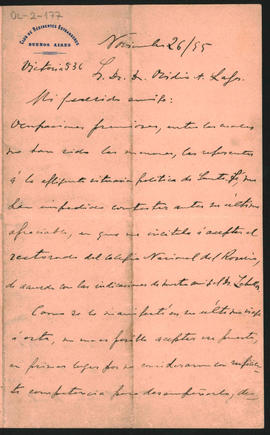 OL-2-177
CLUB DE RESIDENTES EXTRANJEROS
BUENOS AIRES
Noviembre 26/95
Victoria 536
S. Dr. Dn. Ovidio A. Lagos
Mi querido amigo:
Ocupaciones premiosas, entre las cuales
no han sido las menores, las referentes
á la afligente situacion politica de Santa Fé, me
han impedido contestar antes su última
apreciable, en que me invitaba á aceptar el
rectorado del Colegio Nacional del Rosario,
de acuerdo con las indicaciones de nuestro amigo el Dr. Zeballos
Como se lo manifesté en su último viaje
á esta, no me es posible aceptar ese puesto,
en primer lugar por no considerarme con suficien-
te competencia para desempeñarlo,